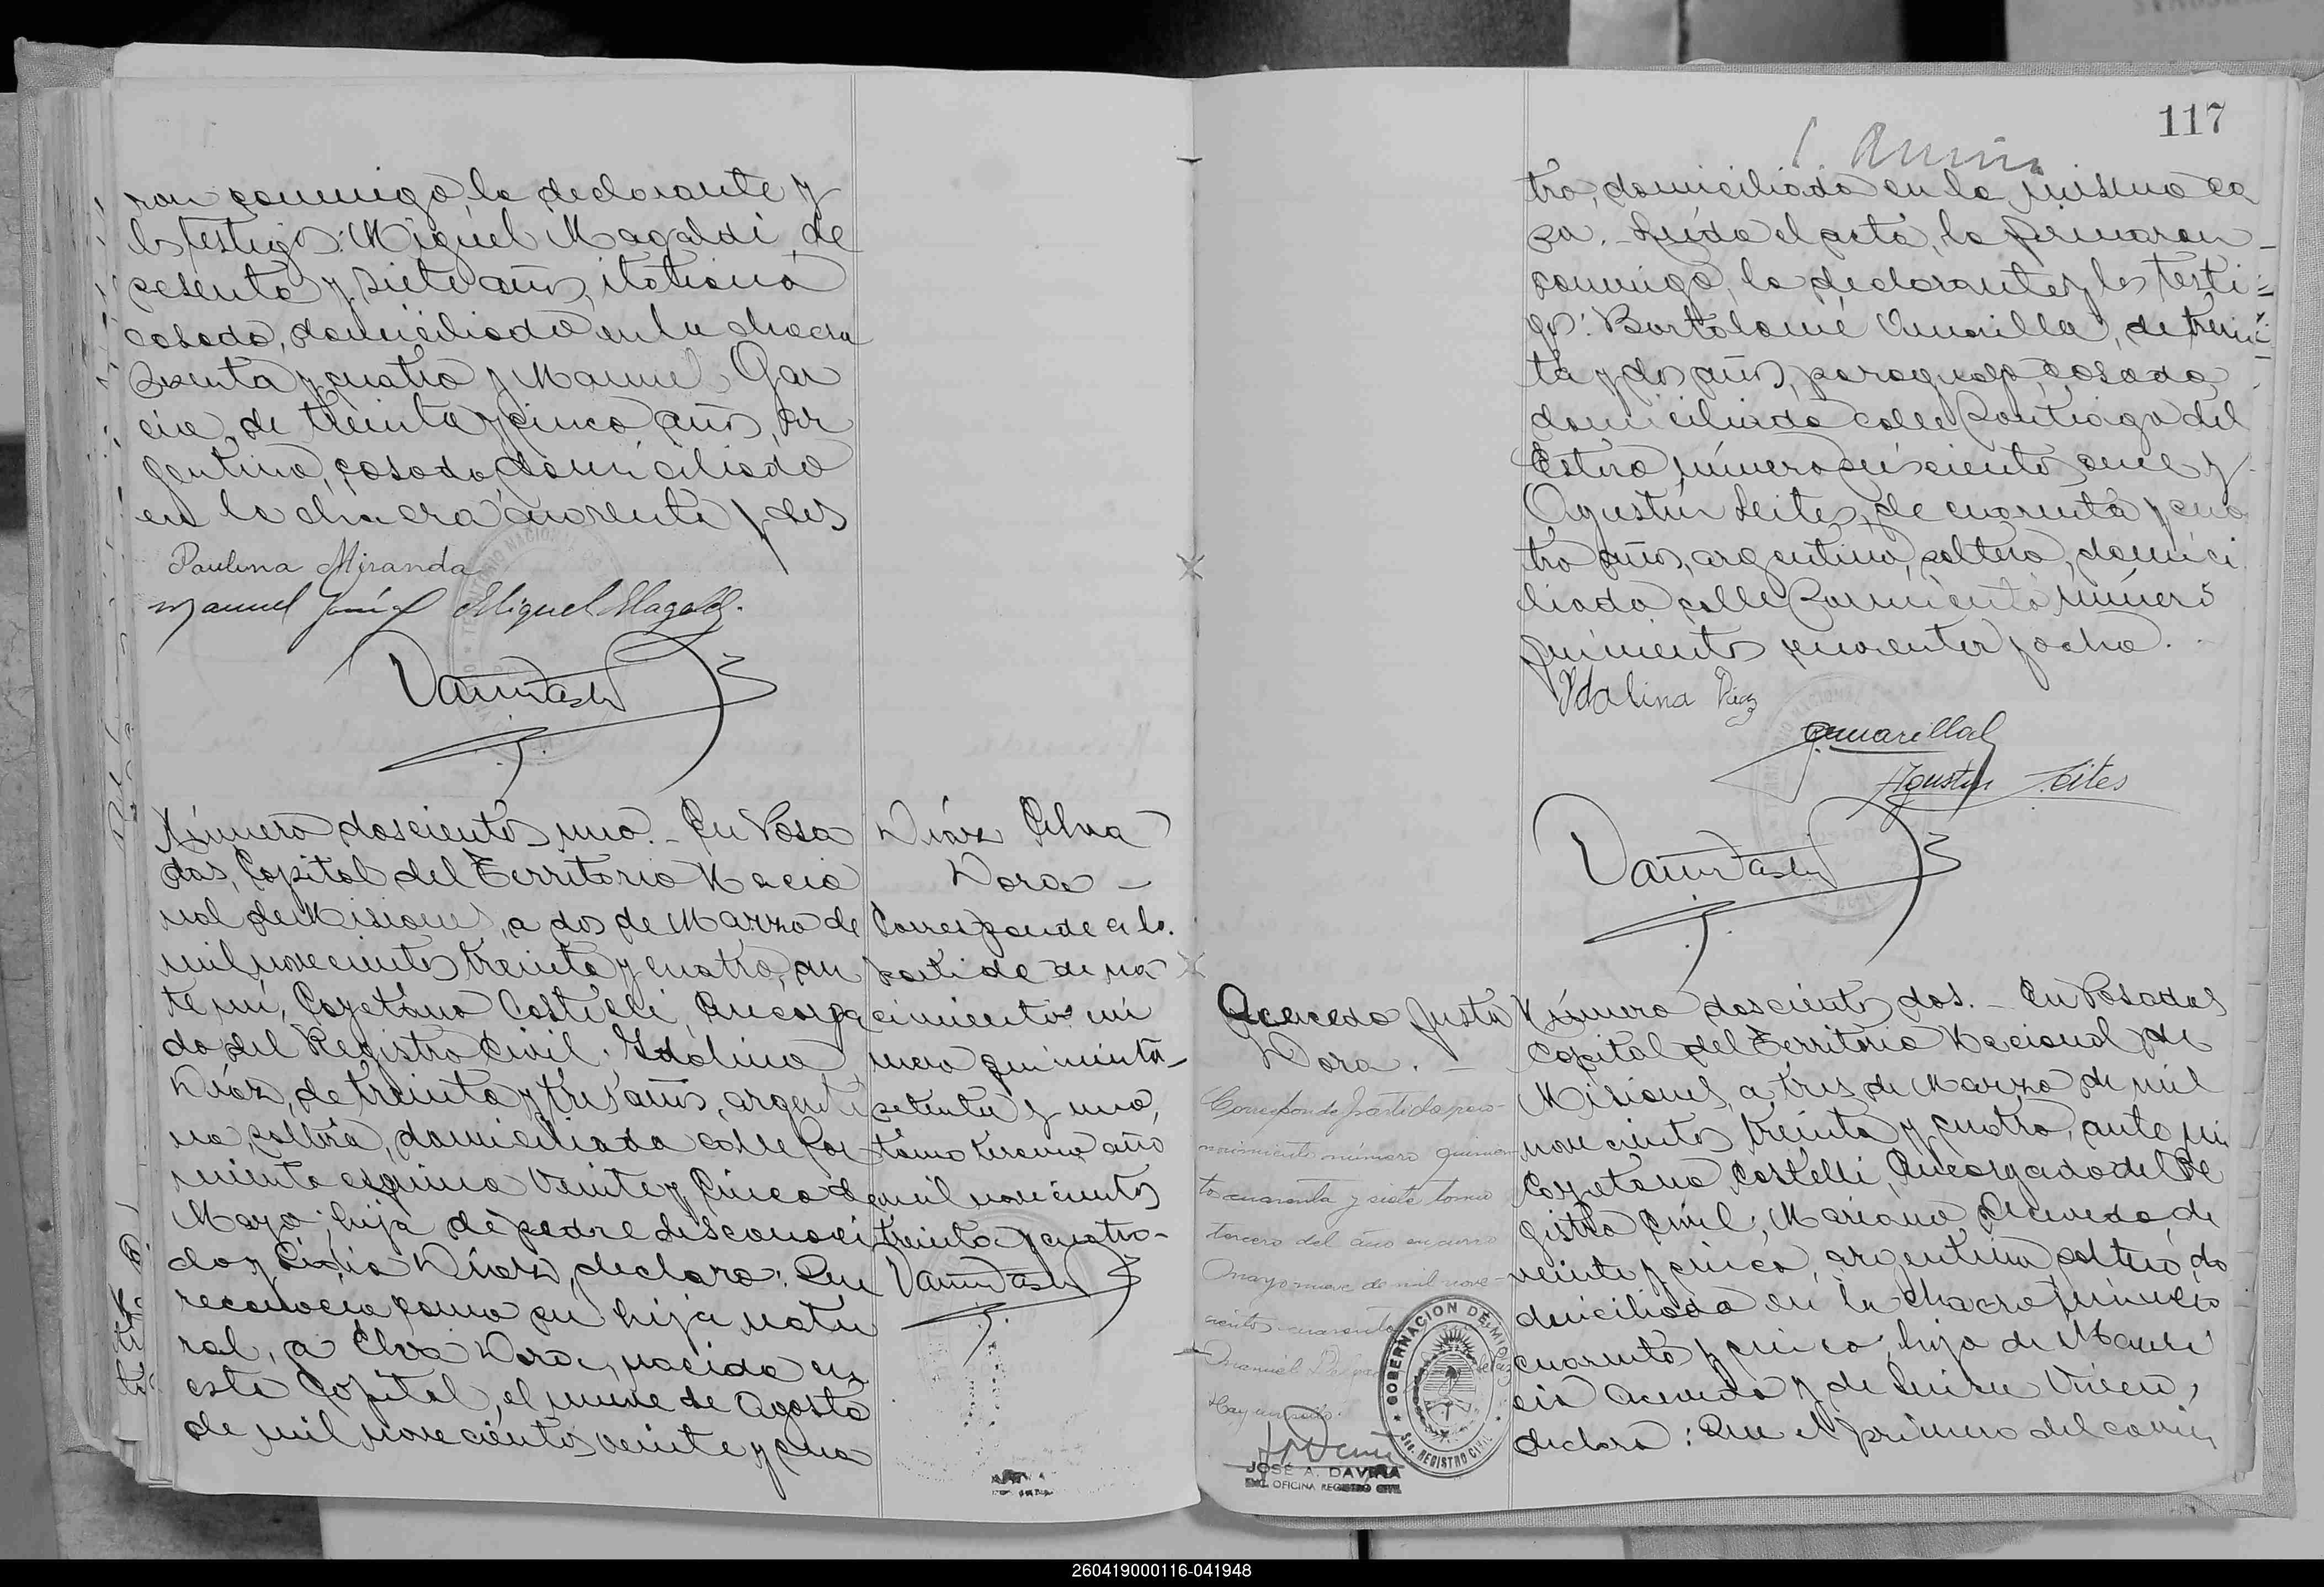 ron conmigo, la declarante y
los testigos: Miguel Magaldi, de
sesenta y siete años, italiano
casado, domiciliado en la chacra
sesenta y cuatro y Manuel Gar
cia, de treinta y cinco años, ar
gentino, casado, domiciliado
en la chacra cuarenta y dos
Paulina Miranda
Manuel Miguel Magaldi.
Número doscientos uno. - En Posa
das, Capital del Territorio Nacio
nal de Misiones, a dos de Marzo de
mil novecientos treinta y cuatro, an
te mí, Cayetano Castelli, Encarga
do del Registro Civil: Idalina
Díaz, de treinta y tres años, argenti
na, soltera, domiciliada calle Sar
miento esquina Veinte y Cinco de
Mayo, hija de padre desconoci
do y Lidia Díaz, declara: Que
reconocia como su hija natu
ral, a Elva Dora, nacida en
esta Capital, el nueve de Agosto
de mil novecientos veinte y cua
Díaz Elva
Dora -
Corresponde a la
partida de na
cimiento nú
mero quinientos
setenta y uno,
tomo tercero año
mil novecientos
treinta y cuatro -
117
tro, domiciliada en la misma ca
sa. - Leída el acta, la firmaron
conmigo, la declarante y los testi=
gos: Bartolomé Amarilla, de trein
ta y dos años, paraguayo, casado,
domiciliado calle Santiago del
Estero número seiscientos once y
Agustín Leites, de cuarenta y cua
tro años, argentino, soltero, domici
liado calle Sarmiento número
quinientos noventa y ocho.
Ydalina Diaz
Amarilla
Agustín Leites
Acevedo Justa
Dora. -
Corresponde partida para
nacimiento número quinien
tos cuarenta y siete tomo
tercero del año en curso
Mayo nueve de mil nove-
cientos cuarenta
Manuel
Hay un sello.
GOBERNACION DE MISIONES
Sec. REGISTRO CIVIL
JOSÉ A. DAVIÑA
ENC. OFICINA REGISTRO CIVIL
Número doscientos dos. - En Posadas
Capital del Territorio Nacional de
Misiones, a tres de Marzo de mil
novecientos treinta y cuatro, ante mí
Cayetano Castelli, Encargado del Re
gistro Civil; Mariano Acevedo de
veinte y cinco, argentino soltero, do
domiciliado en la chacra número
cuarenta y cinco, hijo de Mauri
cio Acevedo y de
declara: Que el primero del corrien
260419000116-041948